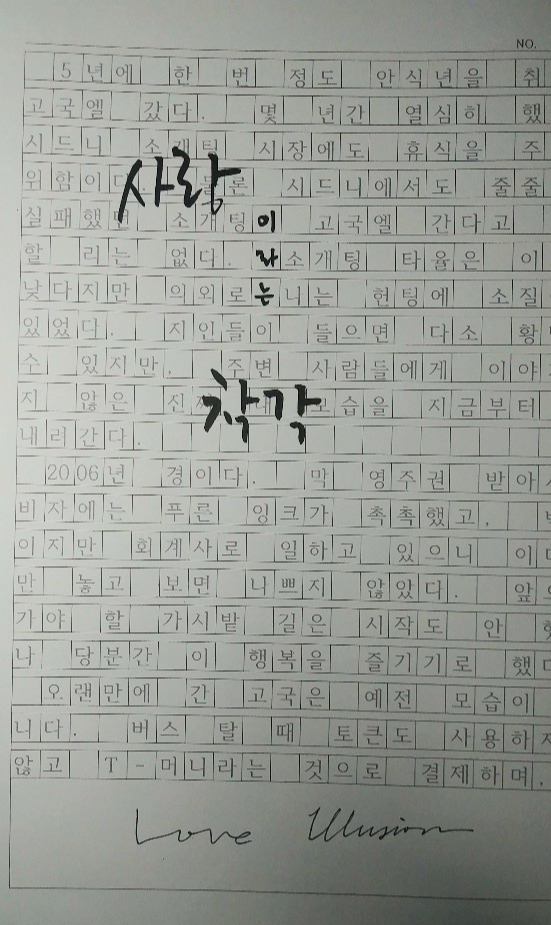 NO.
5년에 한 번 정도 안식년을 취
고국엘 갔다. 몇 년간 열심히 했
시드니 소개팅 시장에도 휴식을 주
위함이다. 물론 시드니에서도 줄줄
실패했던 소개팅이 고국엘 간다고
할 리는 없다. 소개팅 타율은 이
낮다지만 의외로 나는 헌팅에 소질
있었다. 지인들이 들으면 다소 황
수 있지만, 주변 사람들에게 이야
지 않은 모습을 지금부터
내러간다.
2006년 경이다. 막 영주권 받아
비자에는 푸른 잉크가 촉촉했고,
이지만 회계사로 일하고 있으니 이
만 놓고 보면 나쁘지 않았다. 앞
가야 할 가시밭 길은 시작도 안
나 당분간 이 행복을 즐기기로 했
오랜만에 간 고국은 예전 모습이
니다. 버스 탈 때 토큰도 사용하지
않고 T-머니라는 것으로 결제하며.
사랑
이
라
는
착각
Love Illusion